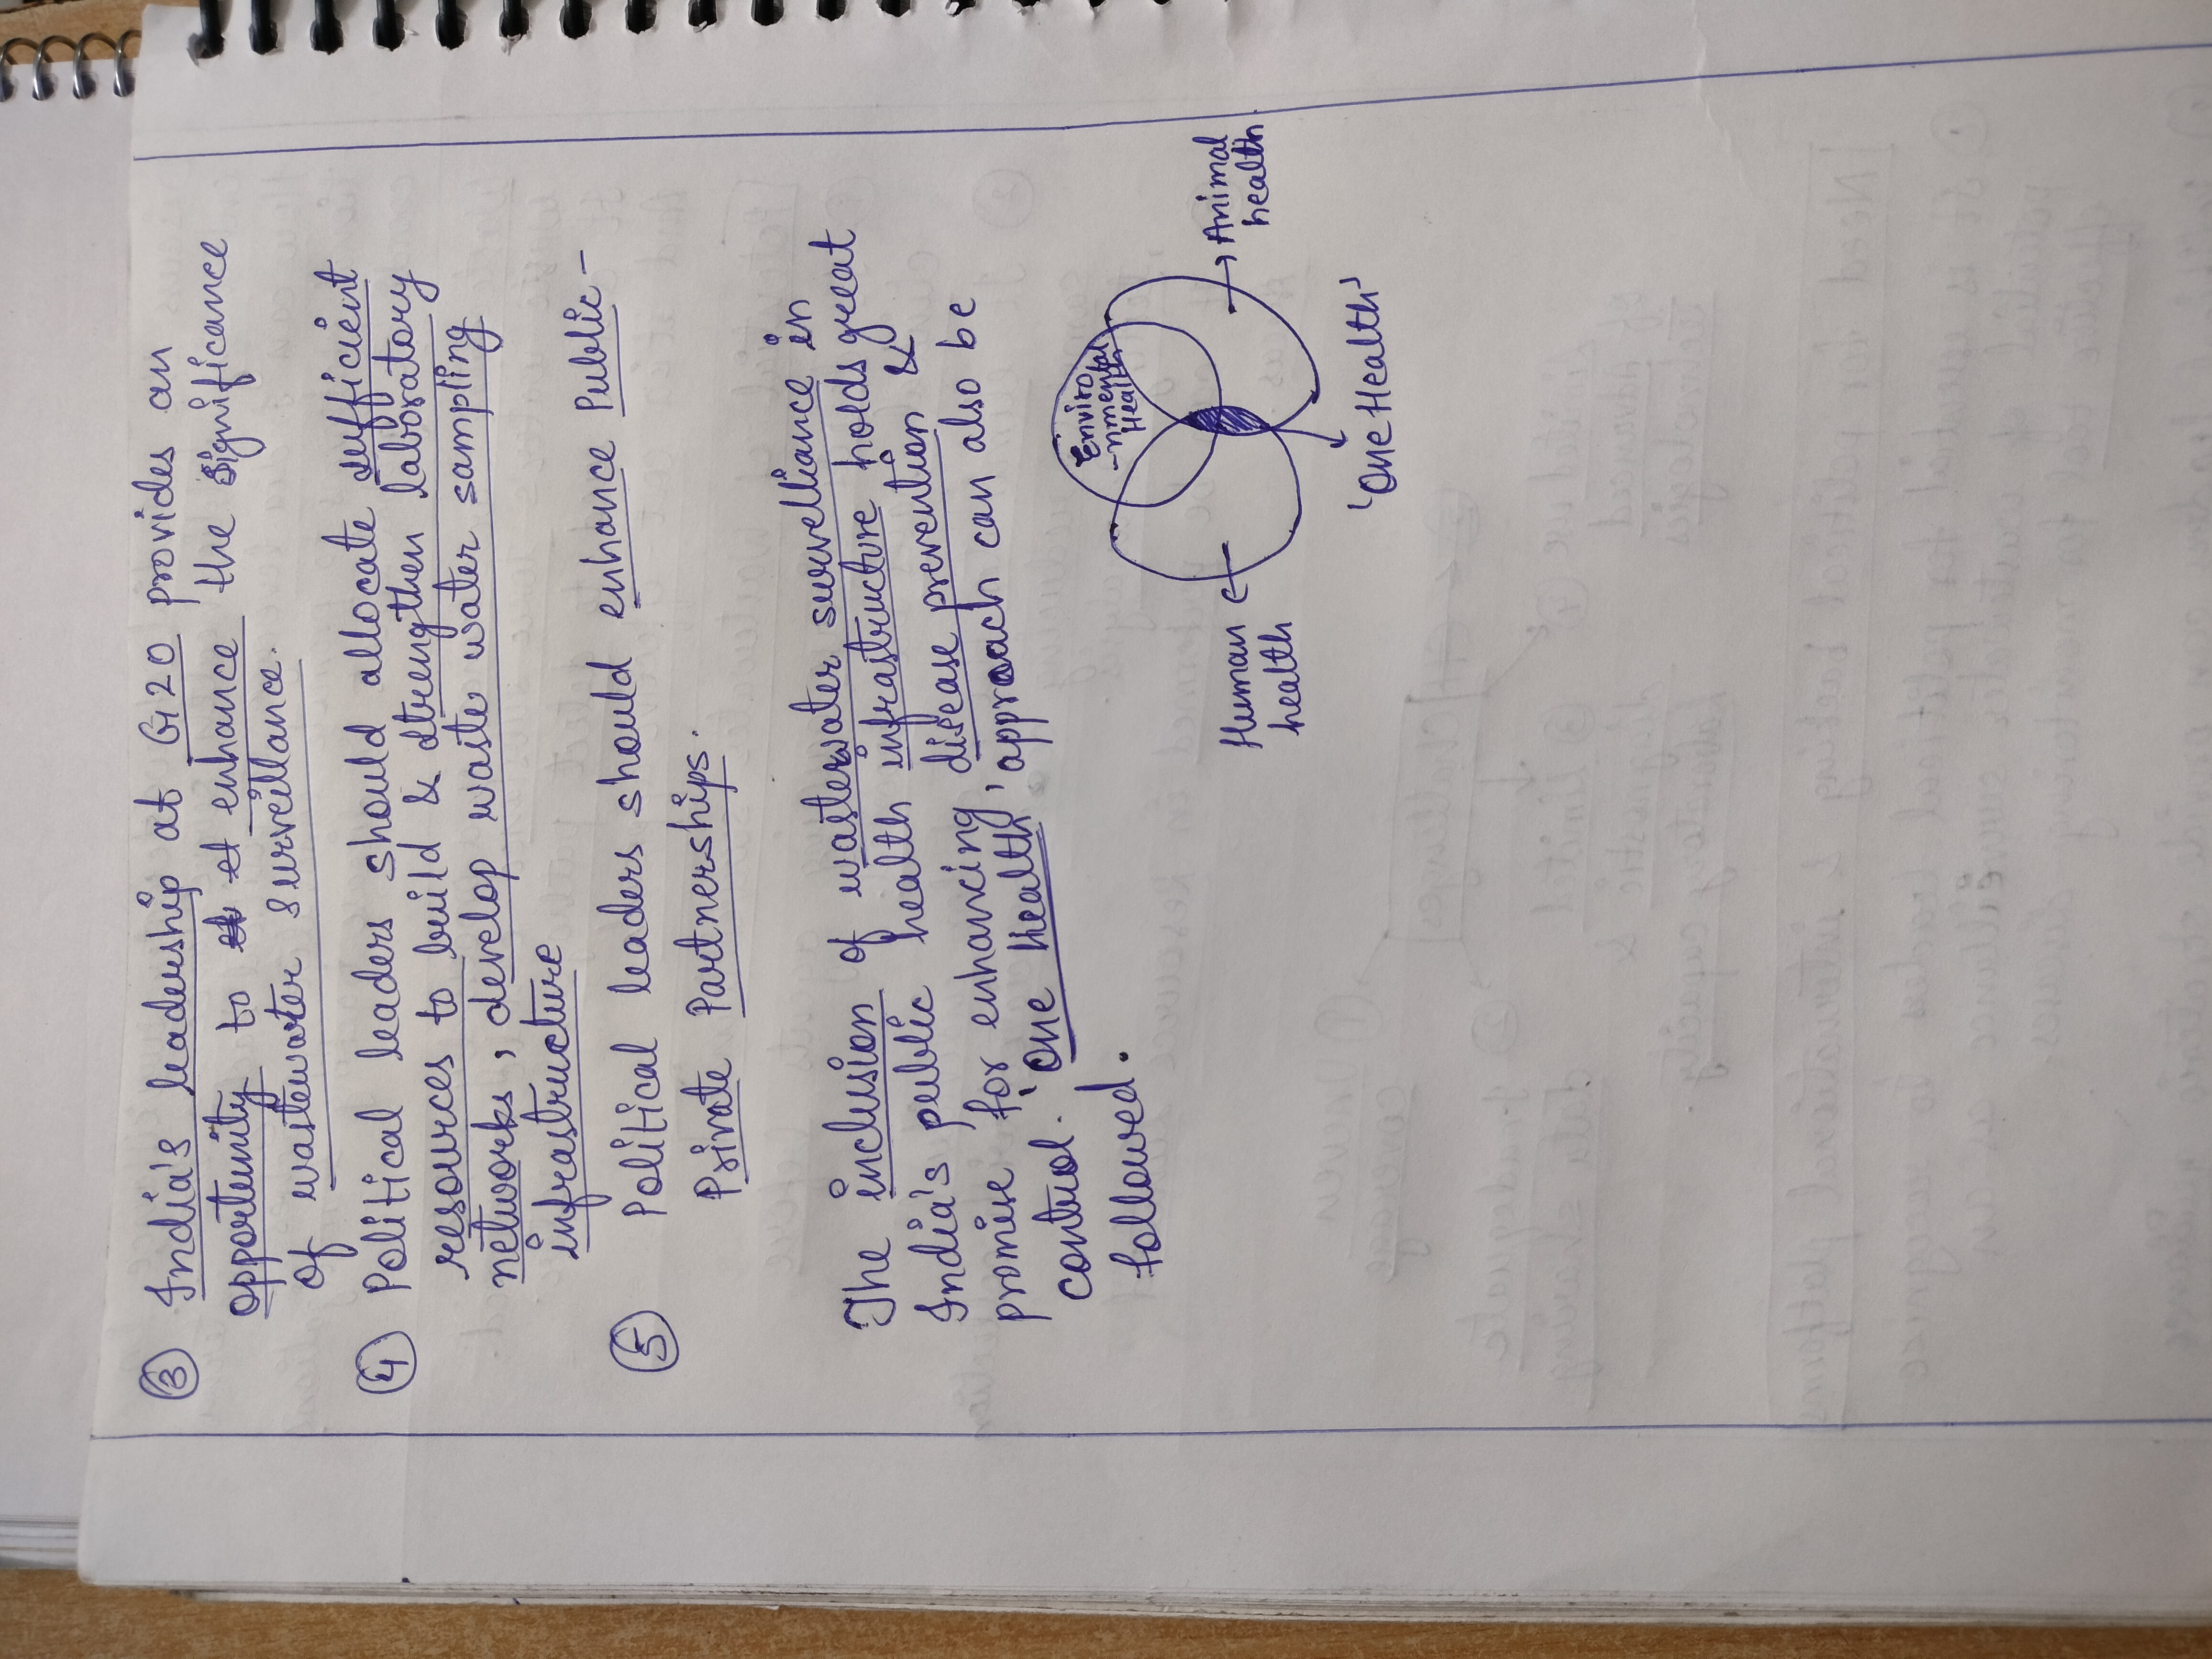 ③ India's leadership at G20 provides an
opportunity to enhance the significance
of wastewater surveillance.
④ Political leaders should allocate sufficient
resources to build & strengthen laboratory
networks, develop waste water sampling
infrastructure
⑤ Political leaders should enhance Public-
Private Partnerships.
The inclusion of wasterwater survelliance in
India's public health infrastructure holds great
promise for enhancing disease prevention &
control. 'One Health' approach can also be
followed.
Enviro
-nmental
Health
Human
health
Animal
health
'One Health'